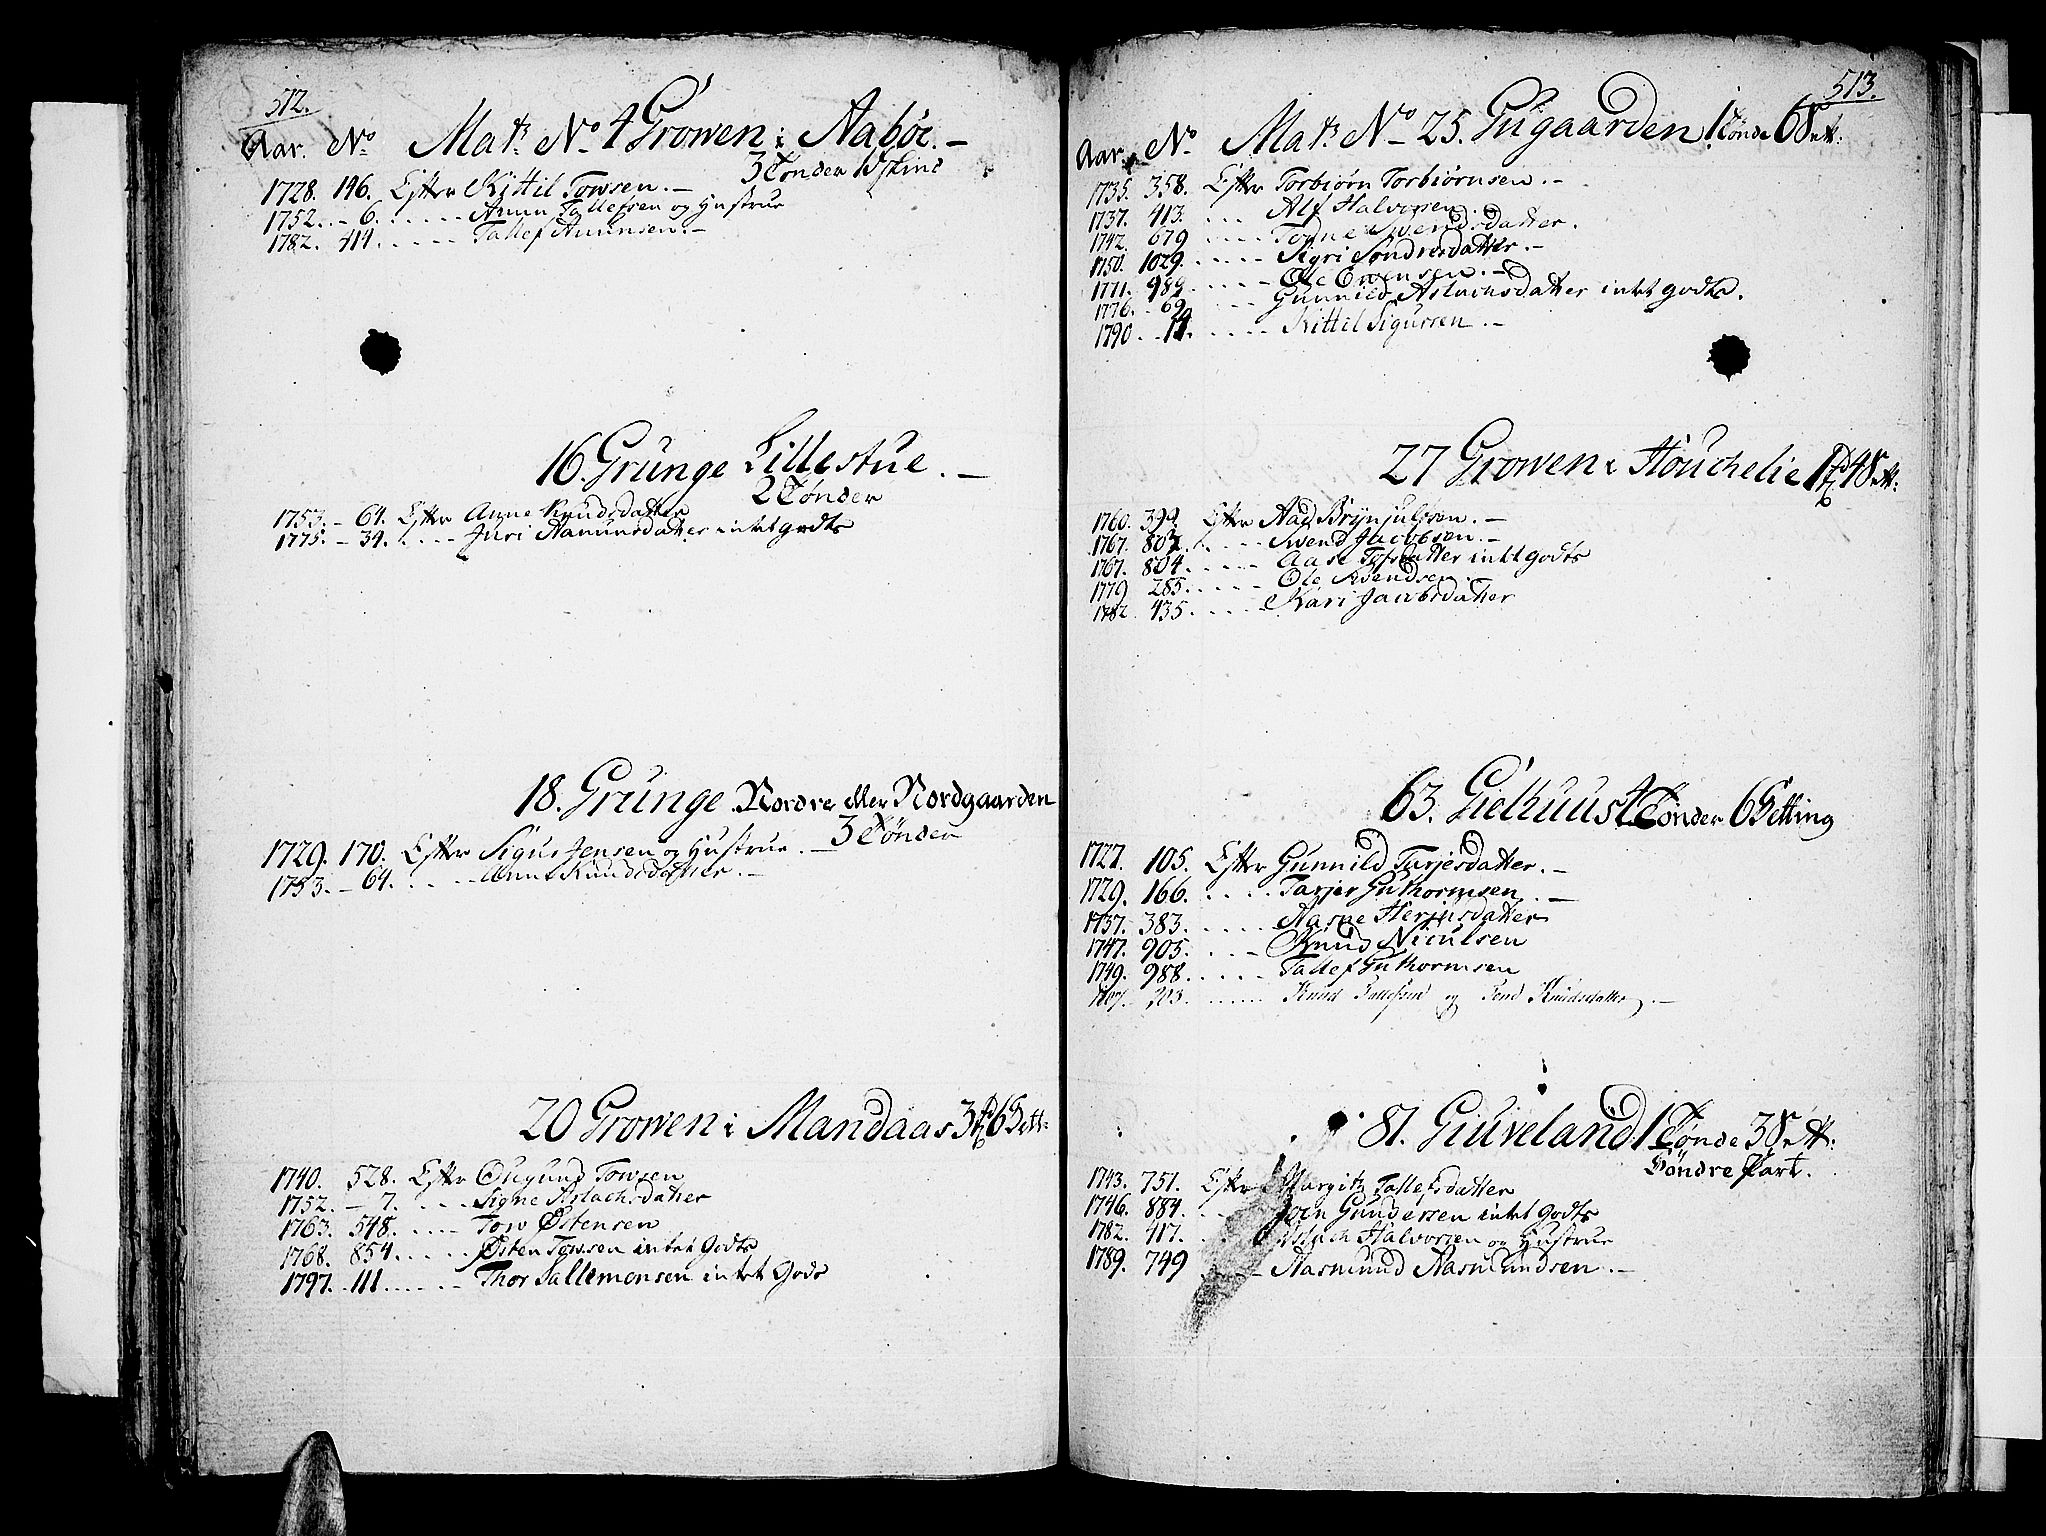 512.
Aar. No Matr. No 4 Growen i Aabøe. –
3 Tønder 1 Skind
1728. 146. Efter Kittil Towsen. –
1752. – 6. . . . . . Amun Tallefsen og Hustrue
1782. 414. . . . . . Tallef Amunsen. –
16. Grunge Lillestue. –
2 Tønder
1753. – 64. Efter Anne Knudsdatter
1775. – 34. . . . . Juri Aamunsdatter intet godts
18. Grunge Nordre eller Nordgaarden
3 Tønder
1729. 170. Efter Sigur Jensen og Hustrue. –
1753. – 64. . . . . – Anne Knudsdatter. –
20 Growen i Mandaas 3 Td 6 Sett:
1740. 528. Efter Øugund Towsen
1752. – 7. . . . . Signe Aslachsdatter
1763. 548. . . . . Tow Østensen
1768. 854. . . . . Østen Towsen intet Godts
1797. . 111. . . . . Thor Sallemonsen intet Gods
513.
Aar. No Matr. No 25. Gugaarden 1 Tønde 6 Sett:
1735. 358. Efter Torbiørn Torbiørnsen. –
1737. 413. . . . Alf Halvorsen
1742. 679 . . . . . Torne Swendsdatter.
1750. 1029. . . . . . Sigri Søndresdatter. –
1771. 989. . . . . . Ole Ewensen. –
1776. – 69 . . . . Gunnild Aslachsdatter intet godts.
1790 . . 14. . . . . . Kittil Sigursen. –
27 Growen i Houchelie 1 Td 4 Sett:
1760. 394. Efter Aad Brynjulsen. –
1767. 802. . . . . . Swend Jacobsen. –
1767. 804. . . . . . Aase Tofsdatter intet godts
1779 285. . . . . . Ole Swendsen
1782. 435. . . . . . Kari Jacobsdatter
63. Gielhuus 4 Tønder 6 Setting
1727. 105. Efter Gunnild Tarjesdatter. –
1729. 166. . . . . Tarjer Guthormsen. –
1737. 383. . . . . . Aasne Herjusdatter
1747. 905. . . . – Knud Niculsen
1749. 988. . . . . . Tallef Guthormsen
1807. 203. . . . . . Knud Tallefsen og Knudsdatter. –
81. Giuveland 1 Tønde 3 Sett:
Søndre Part.
1743. 751. Efter Margit Tallefsdatter
1746. 884. . . . Joen Gundersen intet Godts
1782. 417. . . Aslach Halvorsen og Hustrue
1789. 749 . . . – Aasmund Aasmundsen. –